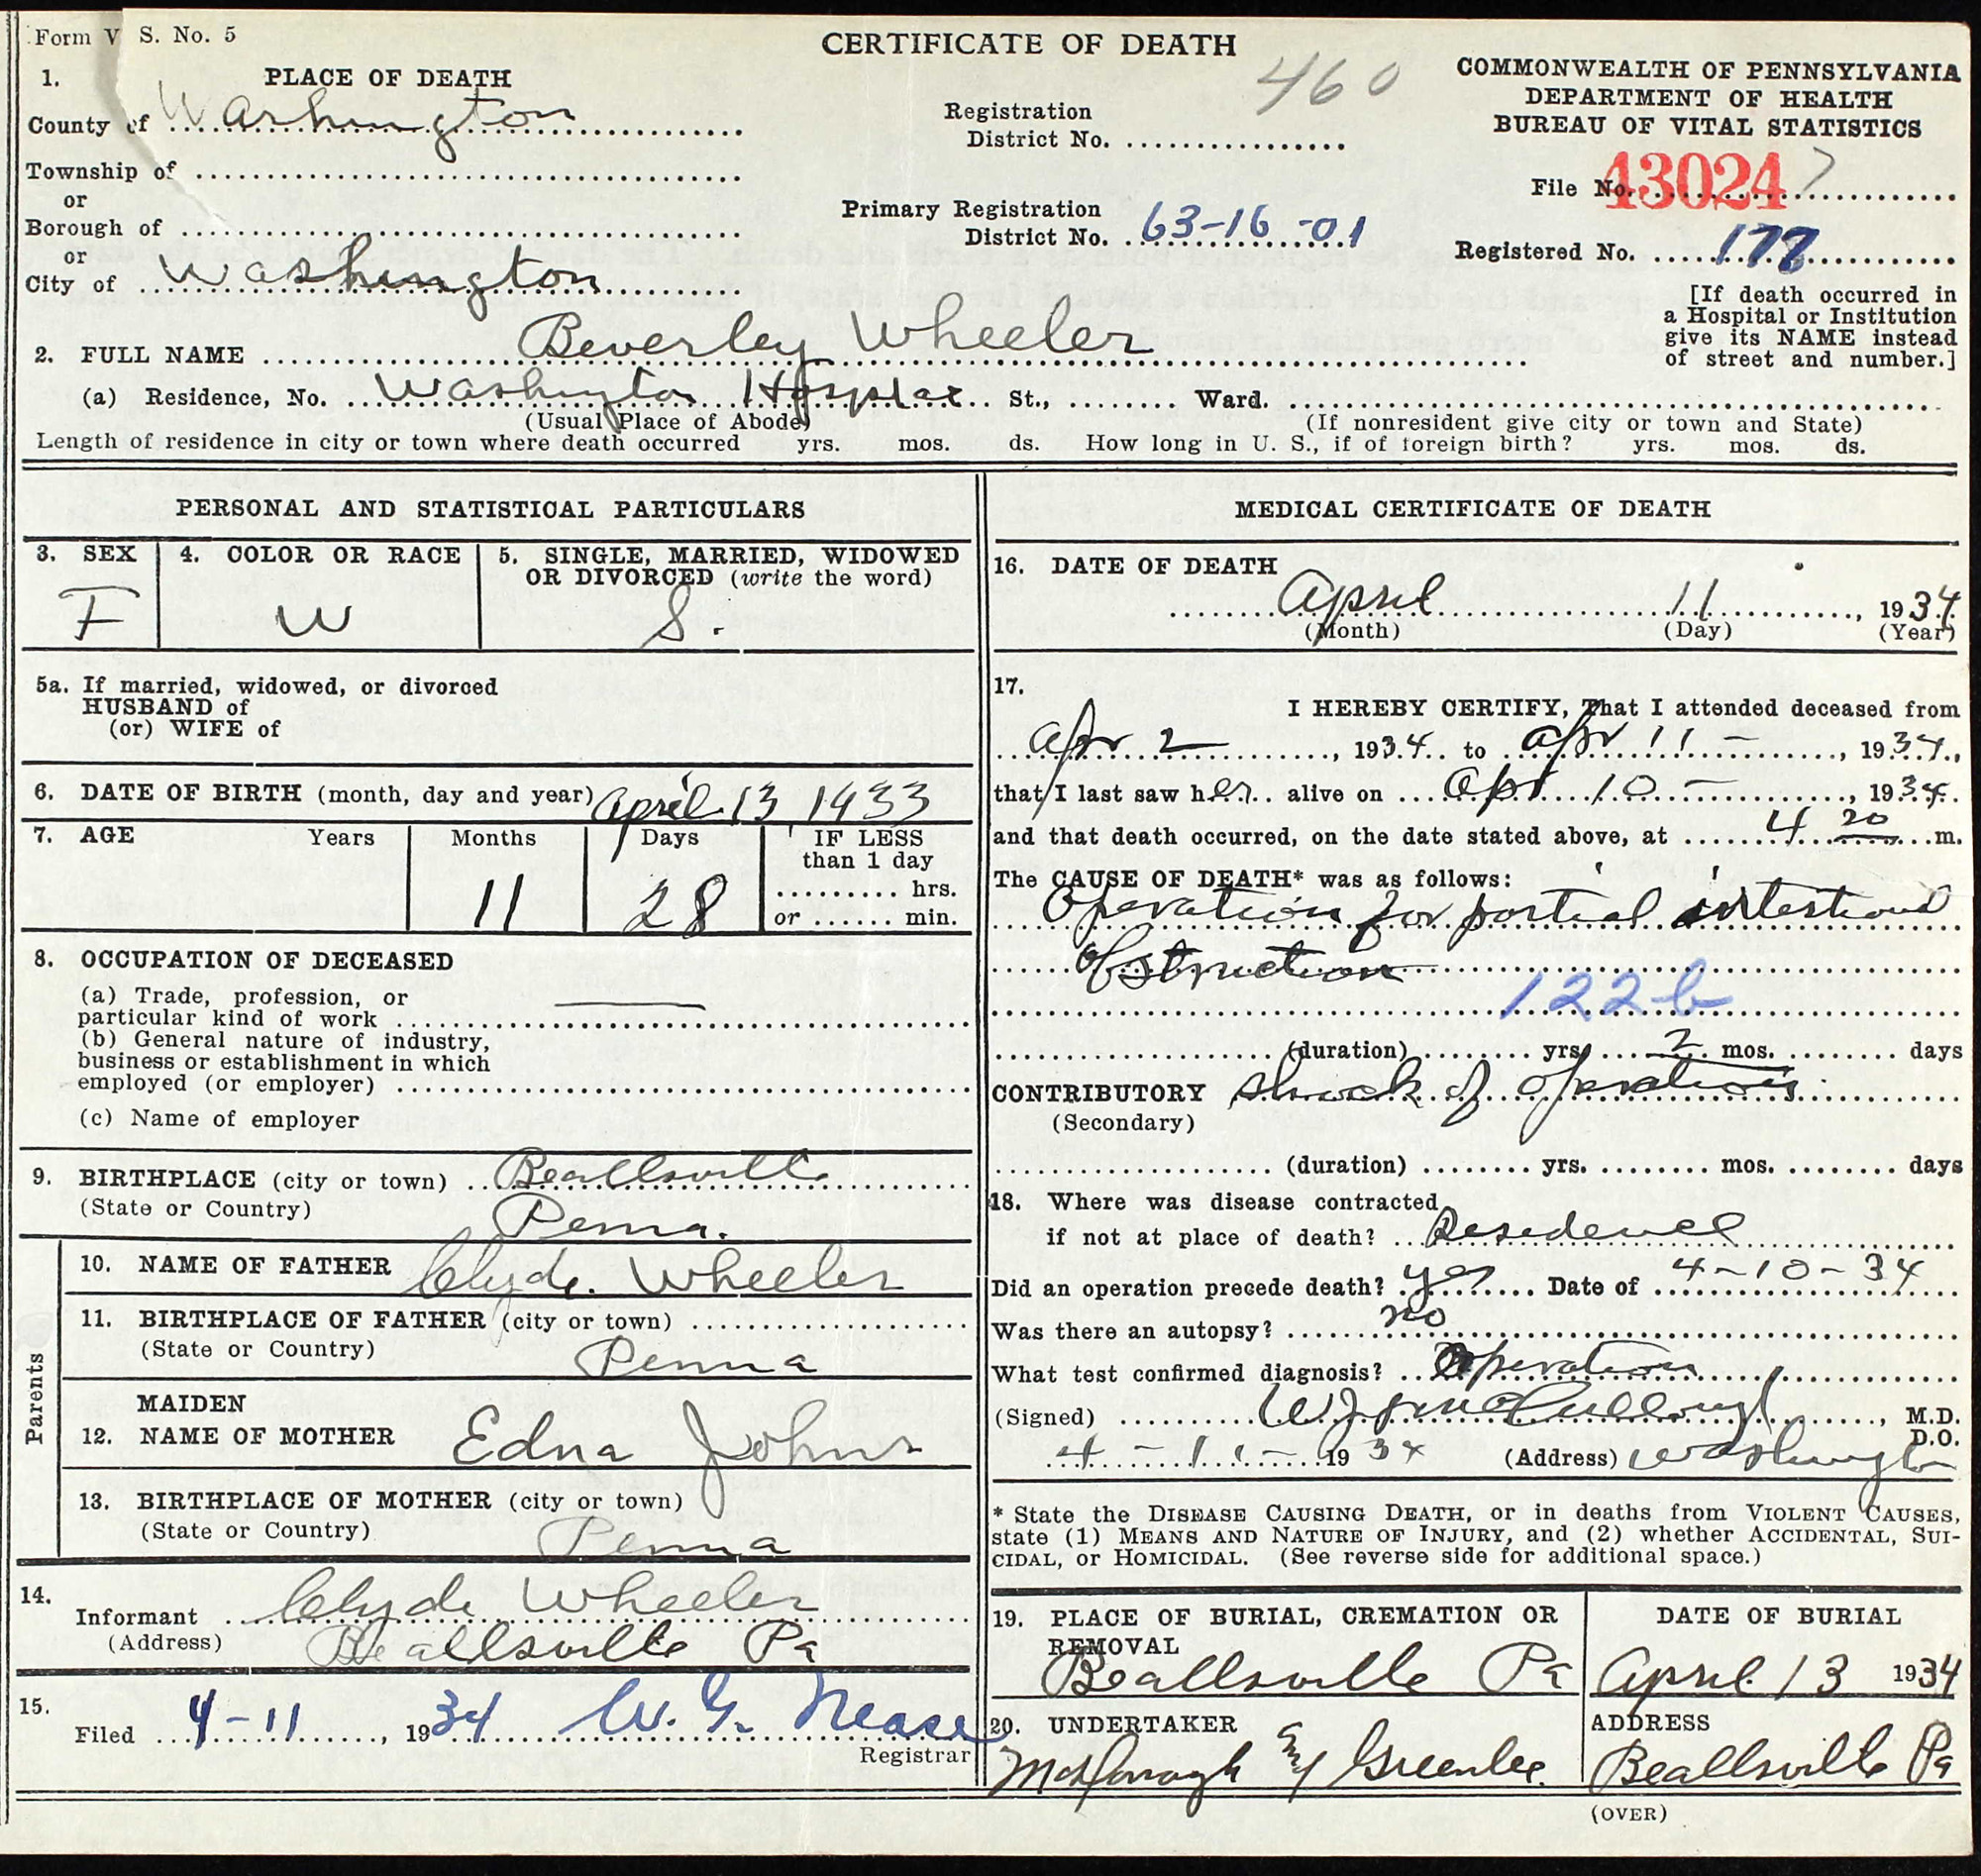 Form V S. No. 5
CERTIFICATE OF DEATH
460
COMMONWEALTH OF PENNSYLVANIA
DEPARTMENT OF HEALTH
BUREAU OF VITAL STATISTICS
1. PLACE OF DEATH
County of Washington
Township of
or
Borough of
or
City of Washington
Registration
District No.
Primary Registration
District No. 63-16-01
File No. 43024
Registered No. 177
[If death occurred in
a Hospital or Institution
give its NAME instead
of street and number.]
2. FULL NAME Beverley Wheeler
(a) Residence, No. Washington Hospital St., Ward.
(Usual Place of Abode) (If nonresident give city or town and State)
Length of residence in city or town where death occurred yrs. mos. ds. How long in U. S., if of foreign birth? yrs. mos. ds.
PERSONAL AND STATISTICAL PARTICULARS
3. SEX
F
4. COLOR OR RACE
W
5. SINGLE, MARRIED, WIDOWED
OR DIVORCED (write the word)
S.
5a. If married, widowed, or divorced
HUSBAND of
(or) WIFE of
6. DATE OF BIRTH (month, day and year) April 13 1933
7. AGE Years Months Days IF LESS
than 1 day
hrs.
or min.
11 28
8. OCCUPATION OF DECEASED
(a) Trade, profession, or
particular kind of work
(b) General nature of industry,
business or establishment in which
employed (or employer)
(c) Name of employer
9. BIRTHPLACE (city or town) Beallsville
(State or Country) Penna.
Parents
10. NAME OF FATHER Clyde Wheeler
11. BIRTHPLACE OF FATHER (city or town)
(State or Country) Penna
MAIDEN
12. NAME OF MOTHER Edna Johns
13. BIRTHPLACE OF MOTHER (city or town)
(State or Country) Penna
14.
Informant Clyde Wheeler
(Address) Beallsville Pa
15.
Filed 4-11, 1934 W. G. Nease
Registrar
MEDICAL CERTIFICATE OF DEATH
16. DATE OF DEATH
April 11, 1934
(Month) (Day) (Year)
17.
I HEREBY CERTIFY, That I attended deceased from
Apr 2, 1934 to Apr 11 -, 1934,
that I last saw her alive on Apr 10 -, 1934.
and that death occurred, on the date stated above, at 4 20 m.
The CAUSE OF DEATH* was as follows:
Operation for partial intestinal
Obstruction
122b
(duration) yrs. 2 mos. days
CONTRIBUTORY Shock of operation
(Secondary)
(duration) yrs. mos. days
18. Where was disease contracted
if not at place of death? Residence
Did an operation precede death? yes Date of 4-10-34
Was there an autopsy? no
What test confirmed diagnosis? Operation
(Signed) McCullough, M.D.
D.O.
4-11-1934 (Address) Washington
* State the DISEASE CAUSING DEATH, or in deaths from VIOLENT CAUSES,
state (1) MEANS AND NATURE OF INJURY, and (2) whether ACCIDENTAL, SUI-
CIDAL, or HOMICIDAL. (See reverse side for additional space.)
19. PLACE OF BURIAL, CREMATION OR
REMOVAL
Beallsville Pa
DATE OF BURIAL
April 13 1934
20. UNDERTAKER
Greenlee
ADDRESS
Beallsville Pa
(OVER)